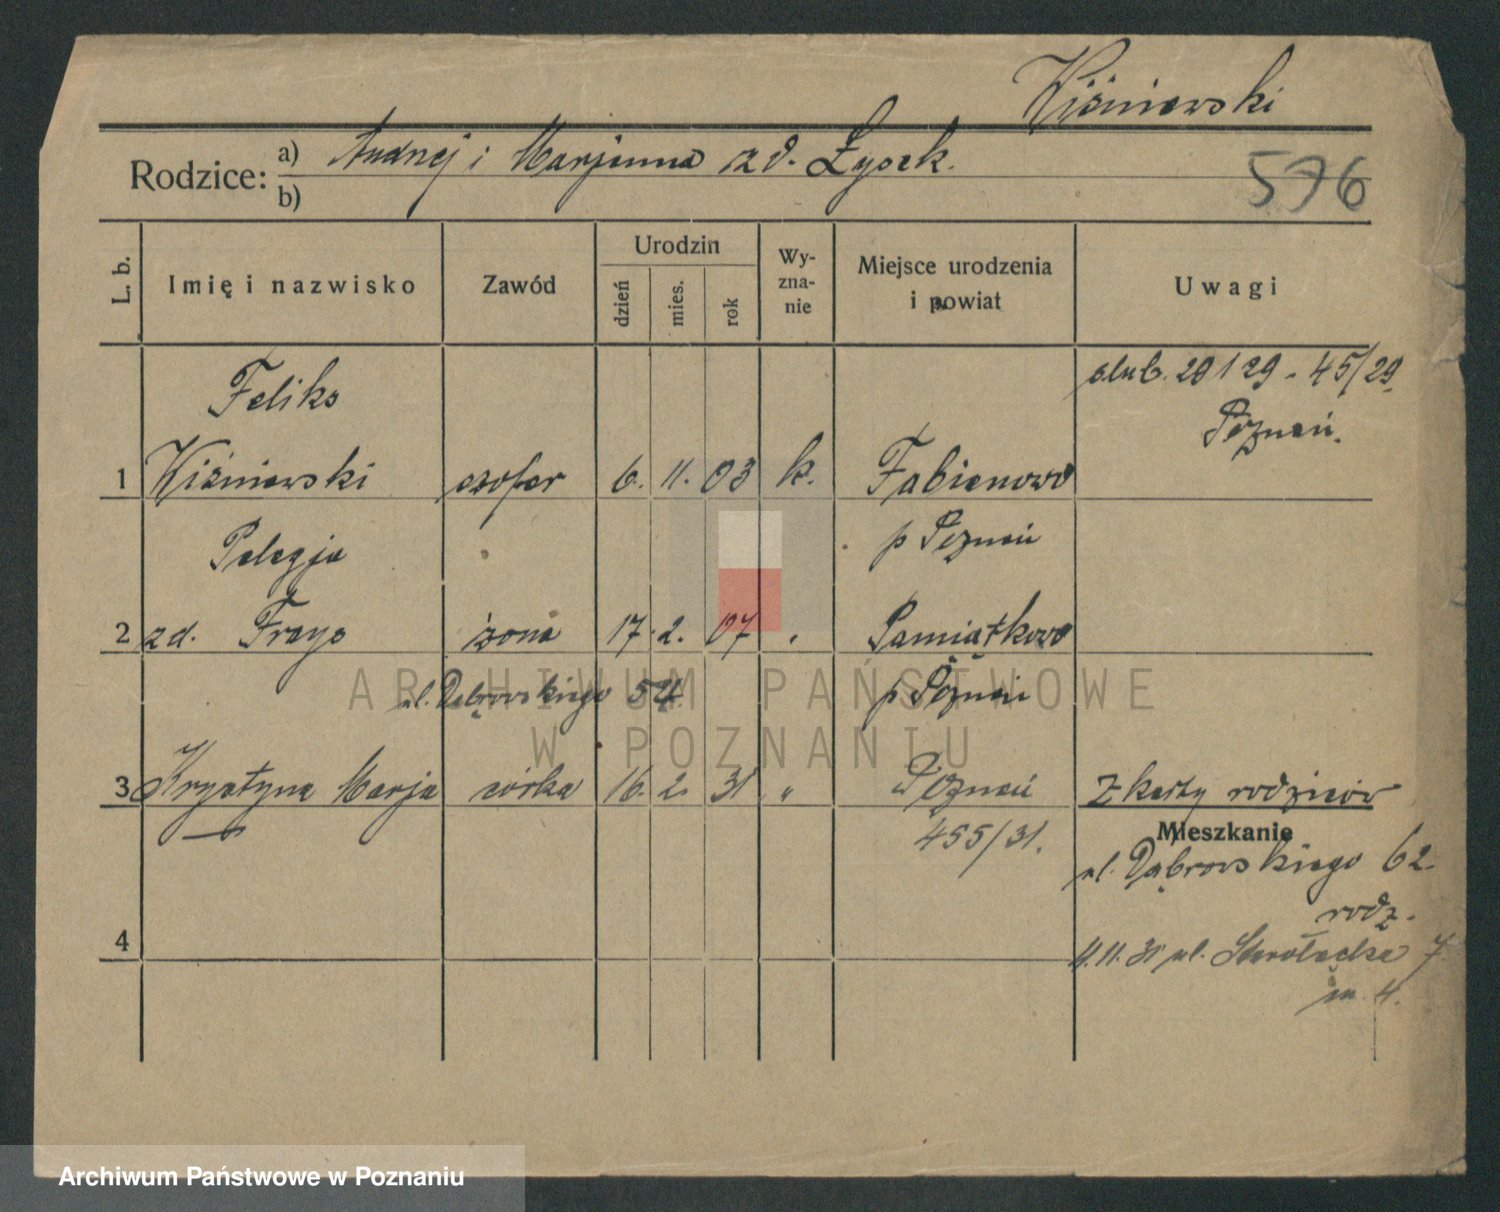 Wiśniewski
Rodzice: a) Andrzej i Marjanna zd. Łysek.
b)
576
L. b. Imię i nazwisko Zawód Urodzin dzień mies. rok Wy-zna-nie Miejsce urodzenia i powiat Uwagi
Feliks
ślub. 29 1 29 - 45/29
Poznań.
1 Wiśniewski szofer 6. 11. 03 k. Fabianowo
Pelagja p Poznań
2 zd. żona 17. 2. 07 " Pamiątkowo
ul. Dąbrowskiego 54 p Poznań
3 Krystyna Marja córka 16. 2. 31 " Poznań z karty rodziców
455/31.
Mieszkanie
ul. Dąbrowskiego 62
rodz.
4
11.11.31 ul. Starołęcka 7
m 4.
ARCHIWUM PAŃSTWOWE
W POZNANIU
Archiwum Państwowe w Poznaniu